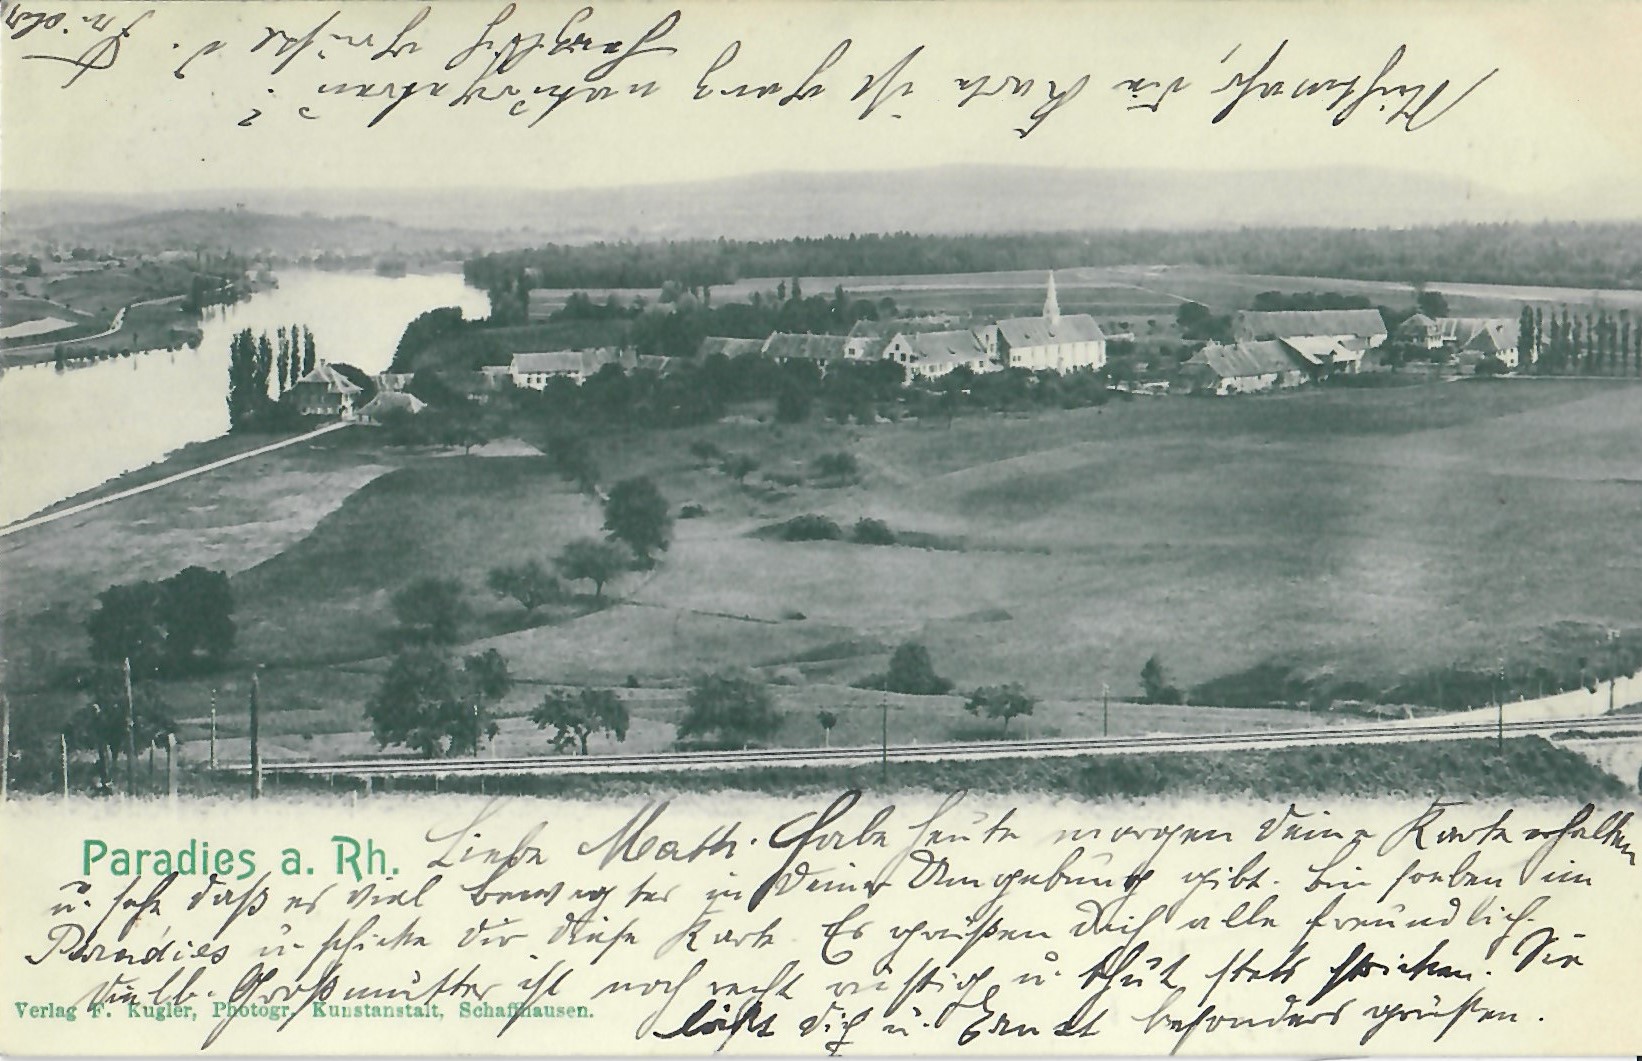 Nichtwahr, die Karte ist ganz naturgetreu?
Herzlich Grüße v. Frieda
Paradies a. Rh.
Liebe Math. Habe heute morgen deine Karte erhalten
u. sehe daß es viel bewegter in deiner Umgebung gibt. Bin soeben im
Paradies u. schicke dir diese Karte. Es grüßen dich alle freundlich.
Die lb. Großmutter ist noch recht rüstig u. thut stets stricken. Sie
läßt dich u. Ernst besonders grüßen.
Verlag F. Kugler, Photogr. Kunstanstalt, Schaffhausen.